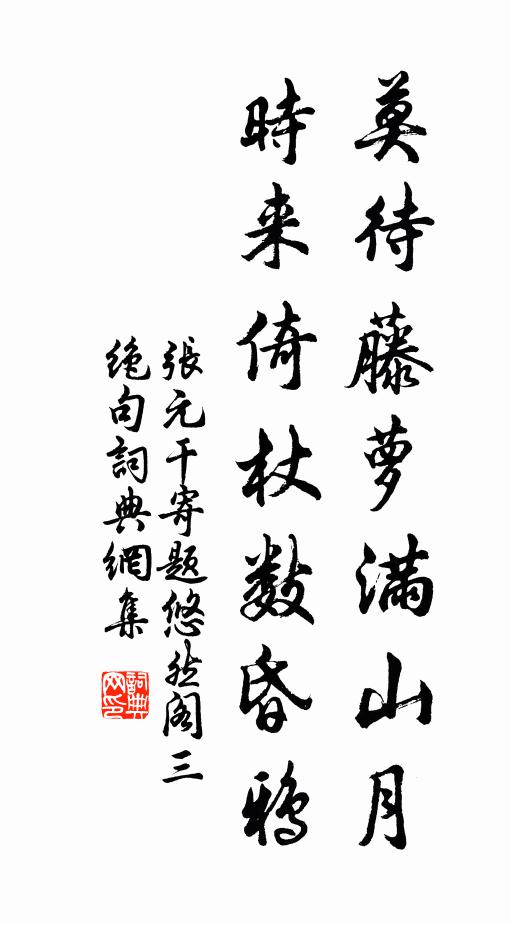 莫待藤萝满山月
時来倚杖数昏鸦
張元干寄题悠然阁三
绝句詞典網集
詞典网印